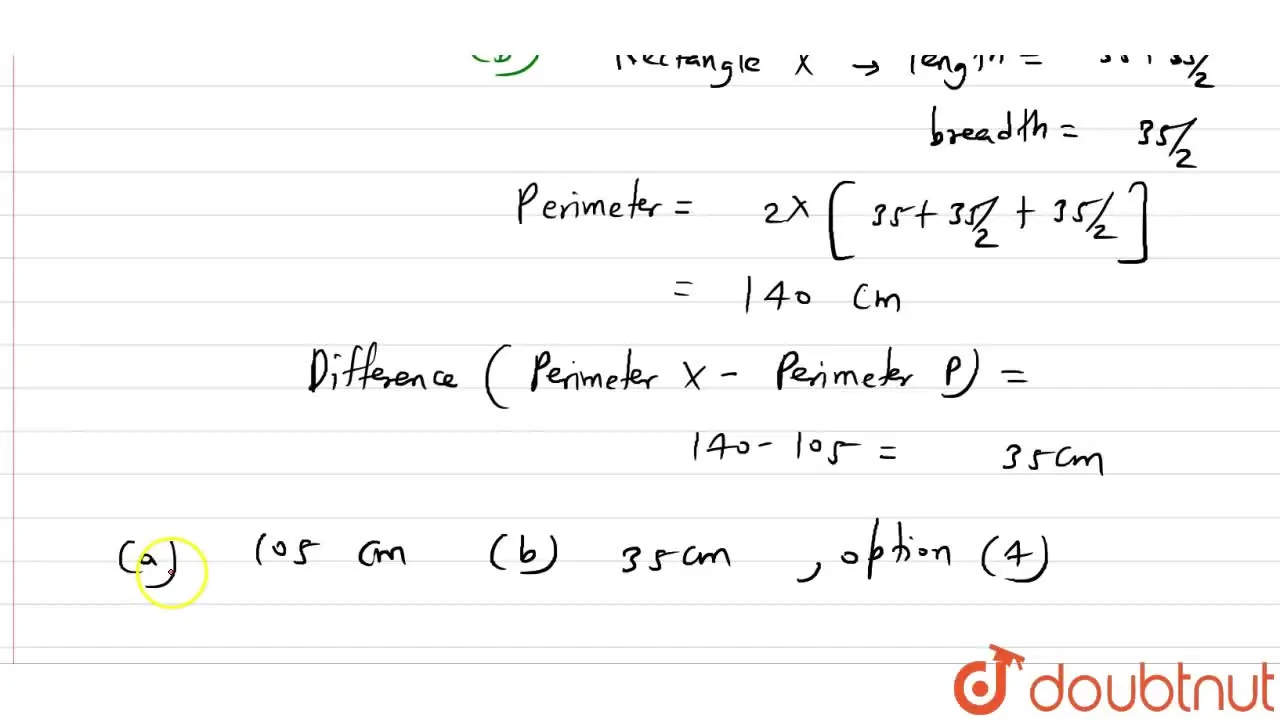 (b) Rectangle X → length = 35 + 35/2
breadth = 35/2
Perimeter = 2 X [ 35 + 35/2 + 35/2 ]
= 140 cm
Difference ( Perimeter X - Perimeter P) =
140 - 105 = 35 cm
(a) 105 cm (b) 35 cm , option (4)
doubtnut